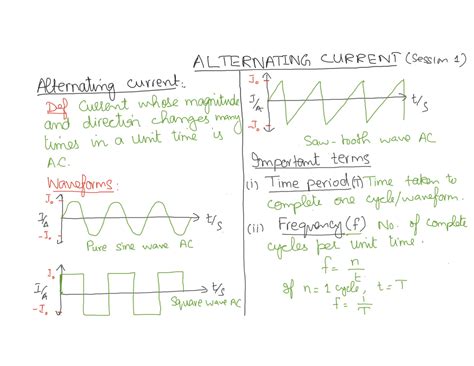 ALTERNATING CURRENT (Session 1)
Alternating current:
Def Current whose magnitude
and direction changes many
times in a unit time is
A.C.
Waveforms:
I₀
I/A
-I₀
t/s
Pure sine wave AC
I₀
I/A
-I₀
t/s
Square wave AC
I₀
I/A
-I₀
t/s
Saw-tooth wave AC
Important terms
(i) Time period (T) Time taken to
complete one cycle/waveform.
(ii) Frequency (f) No. of complete
cycles per unit time.
f = n/t
If n = 1 cycle, t = T
f = 1/T